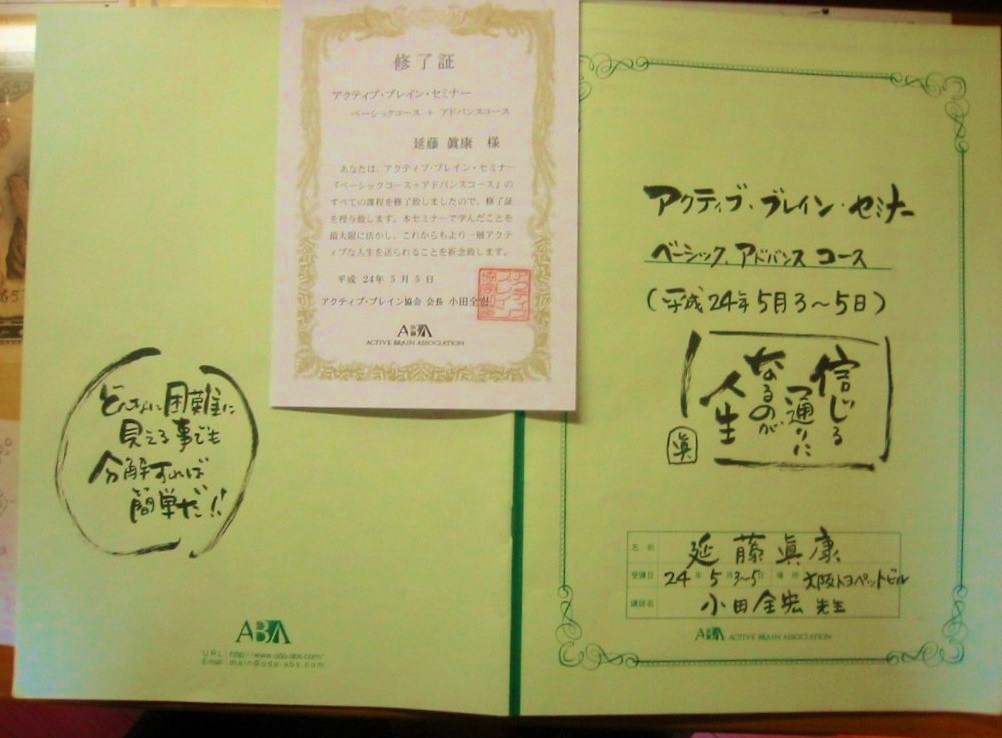 修了証
アクティブ・ブレイン・セミナー
ベーシックコース + アドバンスコース
延藤 眞康 様
あなたは、アクティブ・ブレイン・セミナー
『ベーシックコース+アドバンスコース』の
すべての課程を修了致しましたので、修了証
を授り致します。本セミナーで学んだことを
最大限に活かし、これからもより一層アクテ
ィブな人生を送られることを祈念致します。
平成 24年 5月5日
アクティブ・ブレイン協会 会長 小田全宏
ABA
ACTIVE BRAIN ASSOCIATION
どんなに困難に
見える事でも
分解すれば
簡単だ!!
ABA
URL: http://www.oda-abs.com/
Email: main@oda-abs.com
アクティブ・ブレイン・セミナー
ベーシック、アドバンス コース
(平成24年5月3~5日)
信じる
通りに
なるのが
人生
眞
名前 延藤眞康
受講日 24年 5月 3~5日 場所 大阪トヨペットビル
講師名 小田全宏 先生
ABA ACTIVE BRAIN ASSOCIATION